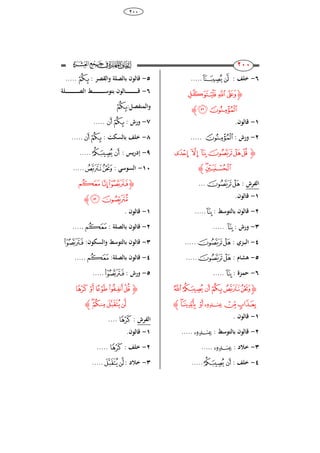 ٢٠٠
٢٠٠
٦- خلف : أَن يُصِيبَنَآ .....
﴿ وَعَلَى ٱللَّهِ فَلْيَتَوَكَّلِ
ٱلْمُؤْمِنُونَ ﴿٥١﴾ ﴾
١- قالون.
٢- ورش : ٱلْمُؤْمِنُونَ .....
﴿ قُلْ هَلْ تَرَبَّصُونَ بِنَآ إِلَّآ إِحْدَى
ٱلْحُسْنَيَيْنِ ﴾
الفرش : هَلْ تَرَبَّصُونَ ...
١- قالون.
٢- قالون بالتوسط : بِنَآ .....
٣- ورش : بِنَآ .....
٤- البزي : هَل تَّرَبَّصُونَ .....
٥- هشام : هَل تَّرَبَّصُونَ .....
٦- حمزة : بِنَآ .....
﴿ وَنَحْنُ نَتَرَبَّصُ بِكُمْ أَن يُصِيبَكُمُ ٱللَّهُ
بِعَذَابٍ مِّنْ عِندِهِۦٓ أَوْ بِأَيْدِينَا ﴾
١- قالون .
٢- قالون بالتوسط : عِندِهِۦٓ .....
٣- خلاد : عِندِهِۦٓ .....
٤- خلف : أَن يُصِيبَكُمُ .....
٥- قالون بالصلة والقصر : بِكُمْ .....
٦- قالون بتوسط الصلة
والمنفصل: بِكُمْ
٧- ورش : بِكُمْ أَن .....
٨- خلف بالسكت : بِكُمْ أَن .....
٩- إدريس : أَن يُصِيبَكُمُ .....
١٠- السوسي : وَنَحْنُ نَتَرَبَّصُ .....
﴿ فَتَرَبَّصُوٓا۟ إِنَّا مَعَكُم
مُّتَرَبِّصُونَ ﴿٥٢﴾ ﴾
١- قالون .
٢- قالون بالصلة : مَعَكُم .....
٣- قالون بالتوسط والسكون: فَتَرَبَّصُوٓا۟
٤- قالون بالصلة: مَعَكُم .....
٥- ورش : فَتَرَبَّصُوٓا۟ .....
﴿ قُلْ أَنفِقُوا۟ طَوْعًا أَوْ كَرْهًا
لَّن يُتَقَبَّلَ مِنكُمْ ﴾
الفرش : كَرْهًا ....
١- قالون.
٢- خلف : كُرْهًا .....
٣- خلاد : لَّن يُتَقَبَّلَ .....